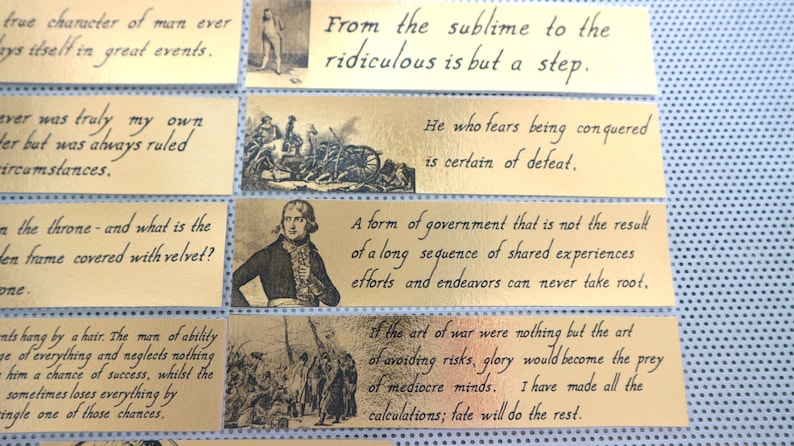 true character of man ever
itself in great events.
From the sublime to the
ridiculous is but a step.
was truly my own
but was always ruled
He who fears being conquered
is certain of defeat.
the throne - and what is the
frame covered with velvet?
A form of government that is not the result
of a long sequence of shared experiences
efforts and endeavors can never take root.
hang by a hair. The man of ability
of everything and neglects nothing
him a chance of success, whilst the
sometimes loses everything by
one of those chances.
If the art of war were nothing but the art
of avoiding risks, glory would become the prey
of mediocre minds. I have made all the
calculations; fate will do the rest.